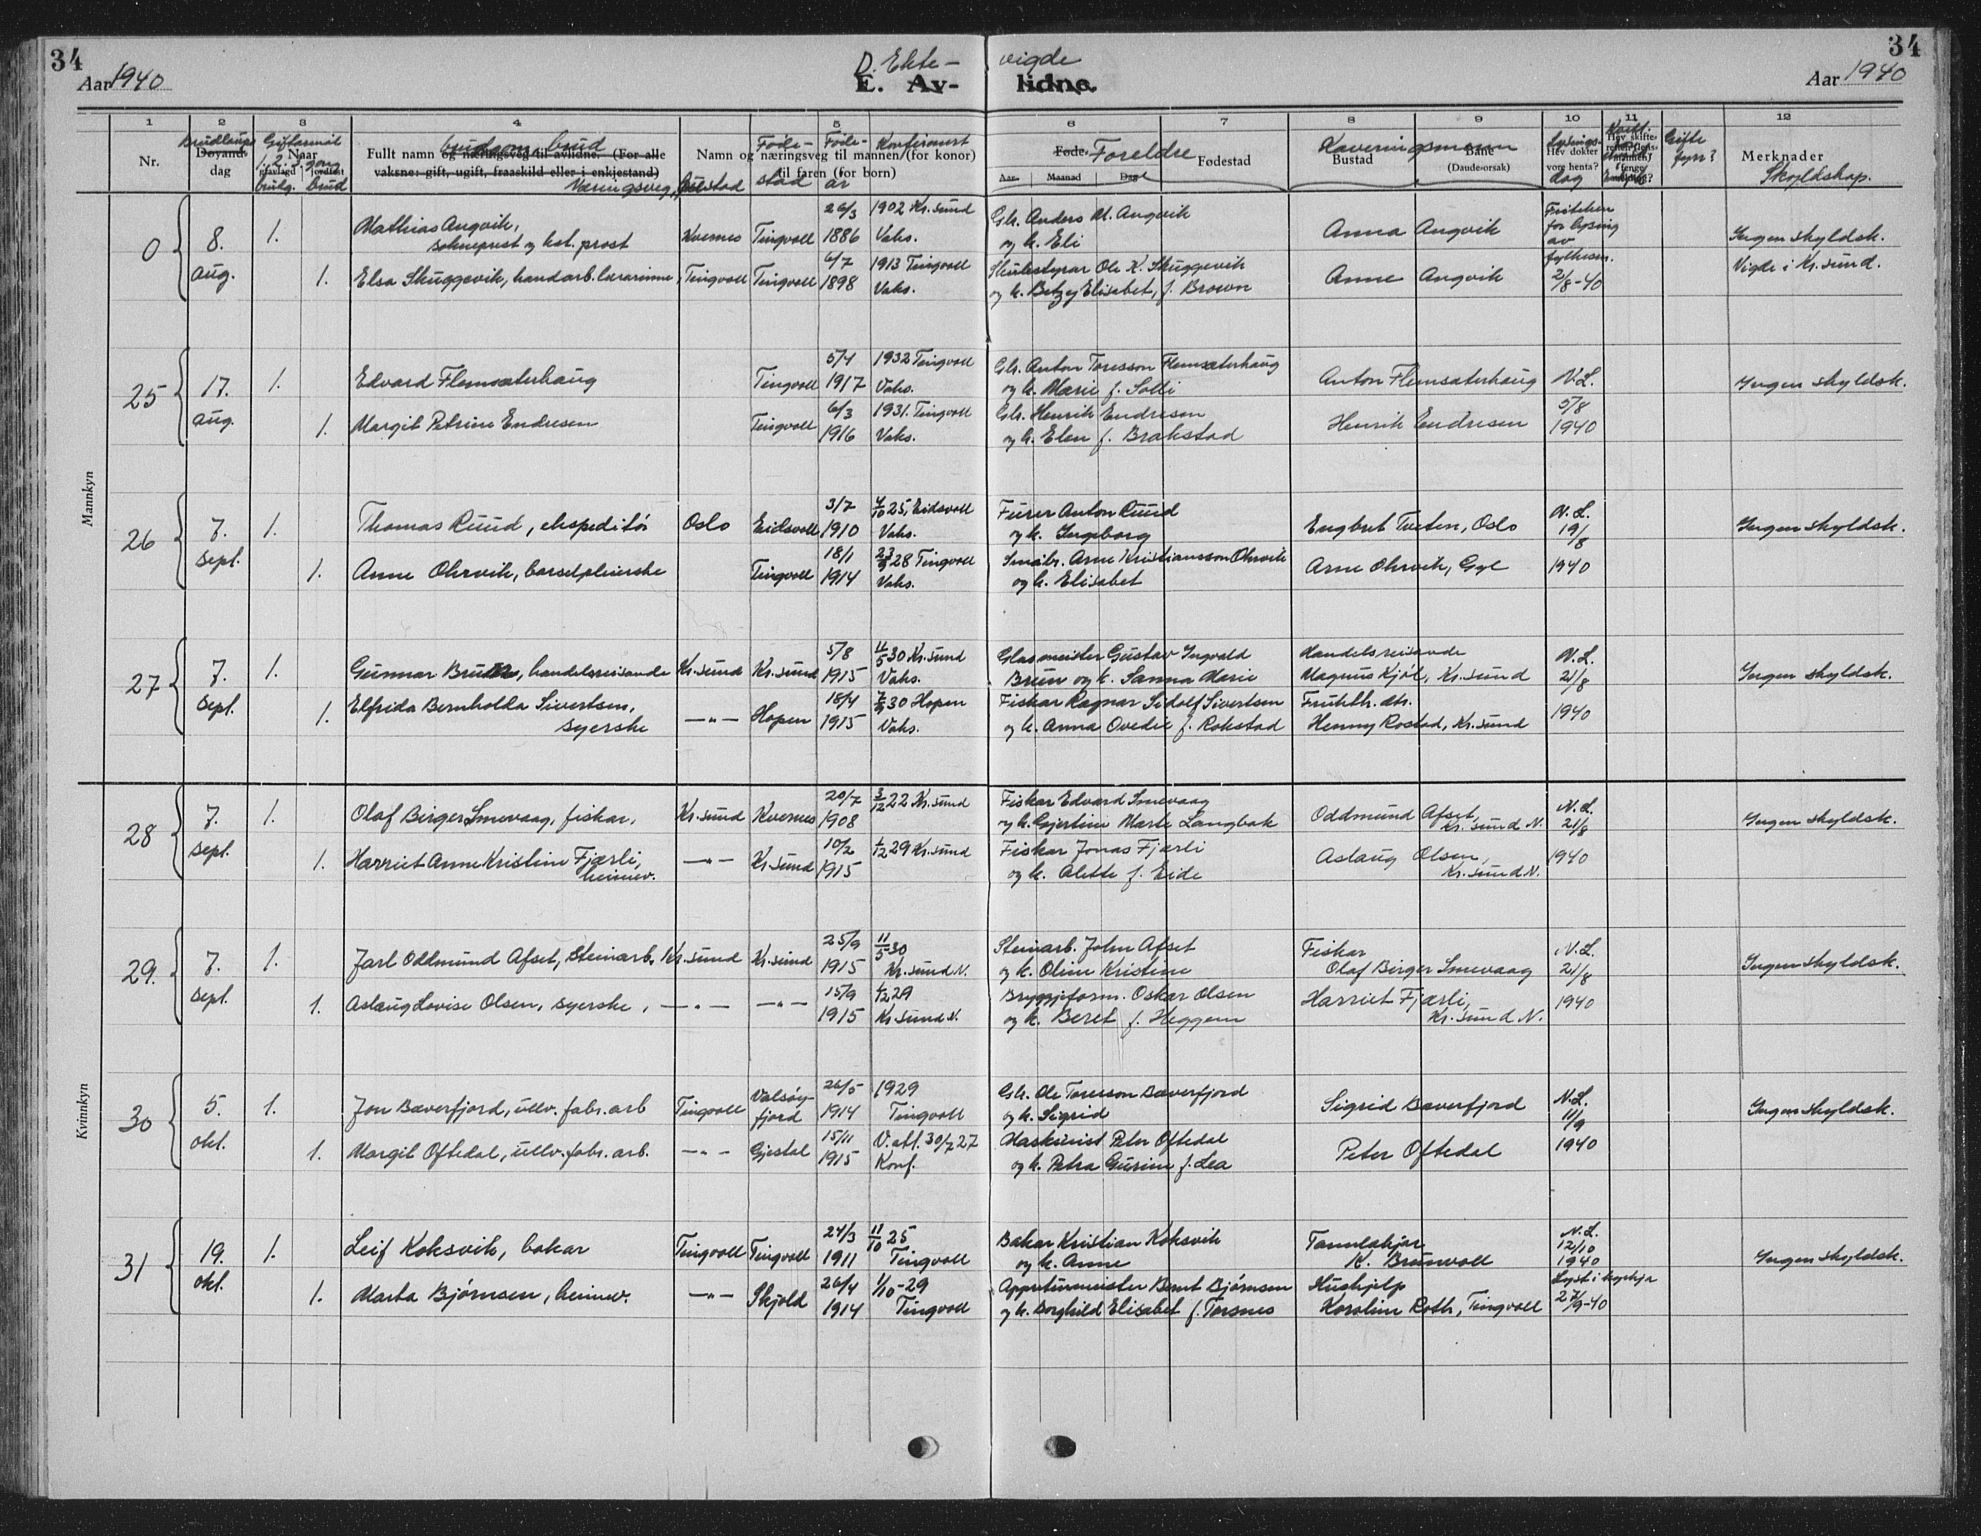 34
34
Aar 1940
D. Ekte- vigde
E. Av- lidne.
Aar 1940
1 2 3 4 5 6 7 8 9 10 11 12
Nr.
Brudlaups
Døyands-
dag
Giftarmål
Naar
1. 2. 3. gong
brudg. brud
brudgom brud
Fullt namn og næringsveg til avlidne. (For alle
vaksne: gift, ugift, fraaskild eller i enkjestand)
Næringsveg, Bustad
Føde-
stad
Føde-
år
Konfirmert
Namn og næringsveg til mannen (for konor)
til faren (for born)
Føde.
Foreldre
Aar. Maanad Dag
Fødestad
Kaveringsmenn
Bustad
Bane
(Daude-orsak)
Lysings-
Hev dokter
vore henta?
dag
Gifte
fyrr?
Merknader
Skyldskap.
Mannkyn
Kvinnkyn
0 8. 1. Mathias Angvik, 26/3 1902 Kr.sund Gbr. Anders M. Angvik Fritaken
sokneprest og kst. prost Kvernes Tingvoll 1886 Vaks. og k. Eli Anna Angvik for lysing Ingen skyldsk.
av
aug. 1. Elsa Skuggevik, handarb.lærarinne, Tingvoll Tingvoll 6/7 1913 Tingvoll Skulestyrar Ole K. Skuggevik Anne Angvik fylkesm. Vigde i Kr.sund.
1898 Vaks. og k. Betzy Elisabet, f. Brown 2/8-40
25 17. 1. Edvard Flemsæterhaug Tingvoll 5/4 1932 Tingvoll Gbr. Anton Toresson Flemsæterhaug
1917 Vaks. og k. Marie f. Solli Anton Flemsæterhaug N.L. Ingen skyldsk.
aug. 1. Margit Petrine Endresen Tingvoll 6/3 1931. Tingvoll Gbr. Henrik Endresen Henrik Endresen 5/8
1916 Vaks. og k. Elen f. Brakstad 1940
26 7. 1. Thomas Ruud, ekspeditør Oslo Eidsvoll 3/7 4/10 25, Eidsvoll Furer Anton Ruud Engbret Tveten, Oslo N.L. Ingen skyldsk.
1910 Vaks. og k. Ingeborg 19/8
sept. 1. Anne Ohrvik, barselpleierske Tingvoll 18/1 23/9 28 Tingvoll Småbr. Arne Kristiansson Ohrvik Arne Ohrvik, Gyl 1940
1914 Vaks. og k. Elisabet
27 7. 1. Gunnar Bruun, handelsreisande Kr.sund Kr.sund 5/8 11/5 30 Kr.sund Glasmeister Gustav Ingvald Handelsreisande N.L. Ingen skyldsk.
1915 Vaks. Bruun og k. Sanna Marie Magnus Kjøl, Kr.sund 21/8
sept. 1. Elfrida Bernholda Sivertsen, —"— Hopen 18/4 7/9 30 Hopen Fiskar Ragnar Sidolf Sivertsen Frukth. dtr. 1940
syerske 1915 Vaks. og k. Anna Ovedie f. Rokstad Henny Rostad, Kr.sund
28 7. 1. Olaf Birger Smevaag, fiskar, Kr.sund Kvernes 20/7 3/12 22 Kr.sund Fiskar Edvard Smevaag Oddmund Afset, N.L. Ingen skyldsk.
1908 og k. Gjertine Marte Langbak Kr.sund N. 21/8
sept. 1. Harriet Anne Kristine Fjærli, —"— Kr.sund 10/2 1/12 29 Kr.sund Fiskar Jonas Fjærli Aslaug Olsen, 1940
heimev. 1915 og k. Alette f. Eide Kr.sund N.
29. 7. 1. Jarl Oddmund Afset, Steinarb. Kr.sund Kr.sund 25/9 11/5 30 Steinarb. John Afset Fiskar N.L. Ingen skyldsk.
1915 Kr.sund N. og k. Oline Kristine Olaf Birger Smevaag 21/8
sept. 1. Aslaug Lovise Olsen, syerske, —"— —"— 15/9 1/12 29 Bryggjeform. Oskar Olsen Harriet Fjærli, 1940
1915 Kr.sund N. og k. Beret f. Heggem Kr.sund N.
30 5. 1. Jon Bæverfjord, ullv.fabr.arb Tingvoll Valsøy- 26/5 1929 Gbr. Ole Toresson Bæverfjord Sigrid Bæverfjord N.L. Ingen skyldsk.
fjord 1914 Tingvoll og k. Sigrid 11/9
okt. 1. Margit Oftedal, ullv.fabr.arb. —"— Gjestal 15/11 V. att. 30/7 27 Maskinist Peter Oftedal Peter Oftedal 1940
1915 Konf. og k. Petra Gurine f. Lea
31 19. 1. Leif Koksvik, bakar Tingvoll Tingvoll 24/3 11/10 25 Bakar Kristian Koksvik Tannlækjar N.L.
1911 Tingvoll og k. Anne K. Brunvoll 12/10 1940 Ingen skyldsk.
okt. 1. Marta Bjørnsen, heimev. —"— Skjold 26/4 1/10-29 Appreturmeister Bernt Bjørnsen Hushjelp Lyst i kyrkja
1914 Tingvoll og k. Borghild Elisabet f. Torsnes Karoline Roth, Tingvoll 27/9-40